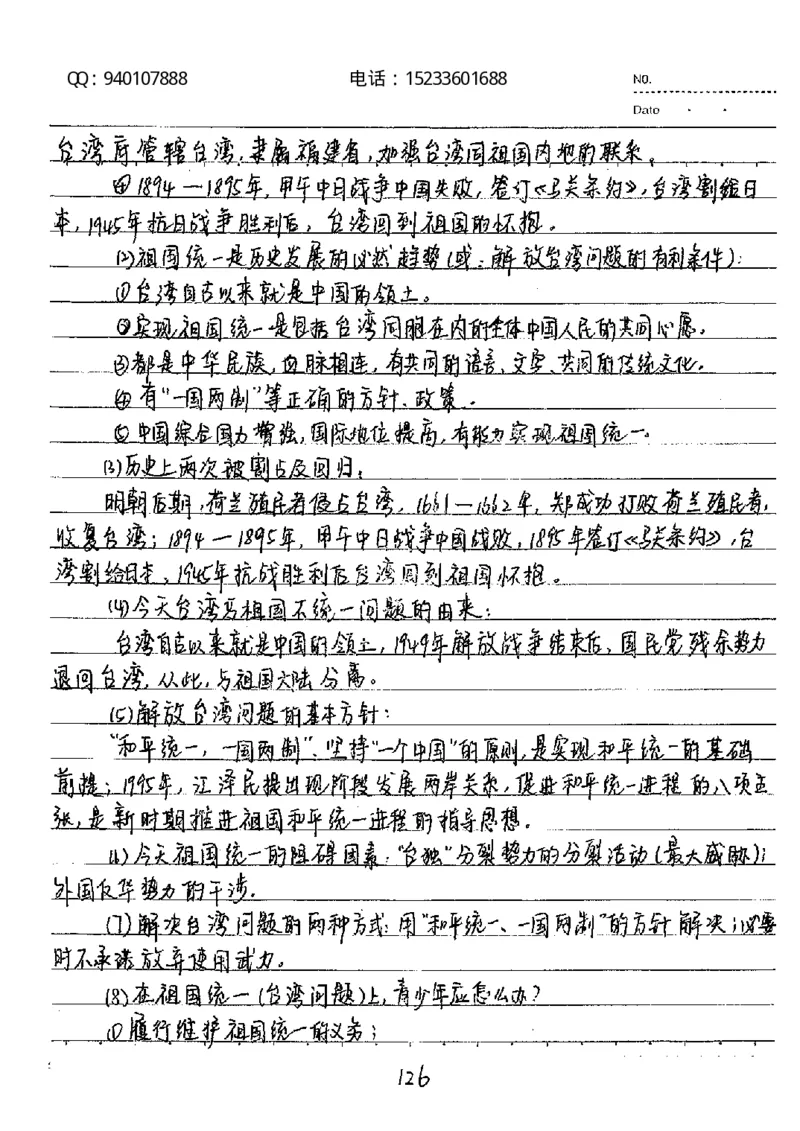 QQ：940107888 电话：15233601688 NO.
Date
台湾府管辖台湾，隶属福建省，加强台湾同祖国内地的联系。
④1894—1895年，甲午中日战争中国失败，签订《马关条约》，台湾割给日
本，1945年抗日战争胜利后，台湾回到祖国的怀抱。
(2)祖国统一是历史发展的必然趋势(或：解放台湾问题的有利条件)：
①台湾自古以来就是中国的领土。
②实现祖国统一是包括台湾同胞在内的全体中国人民的共同心愿。
③都是中华民族，血脉相连，有共同的语言、文字、共同的传统文化。
④有“一国两制”等正确的方针、政策。
⑤中国综合国力增强，国际地位提高，有能力实现祖国统一。
(3)历史上两次被割占及回归：
明朝后期，荷兰殖民者侵占台湾，1661—1662年，郑成功打败荷兰殖民者，
收复台湾；1894—1895年，甲午中日战争中国战败，1895年签订《马关条约》，台
湾割给日本，1945年抗战胜利后台湾回到祖国怀抱。
(4)今天台湾与祖国不统一问题的由来：
台湾自古以来就是中国的领土，1949年解放战争结束后，国民党残余势力
退回台湾，从此，与祖国大陆分离。
(5)解放台湾问题的基本方针：
“和平统一，一国两制”、坚持“一个中国”的原则，是实现和平统一的基础
前提；1995年，江泽民提出现阶段发展两岸关系，促进和平统一进程的八项主
张，是新时期推进祖国和平统一进程的指导思想。
(6)今天祖国统一的阻碍因素：“台独”分裂势力的分裂活动(最大威胁)；
外国反华势力的干涉。
(7)解决台湾问题的两种方式：用“和平统一、一国两制”的方针解决；必要
时不承诺放弃使用武力。
(8)在祖国统一(台湾问题)上，青少年应怎么办？
①履行维护祖国统一的义务；
126